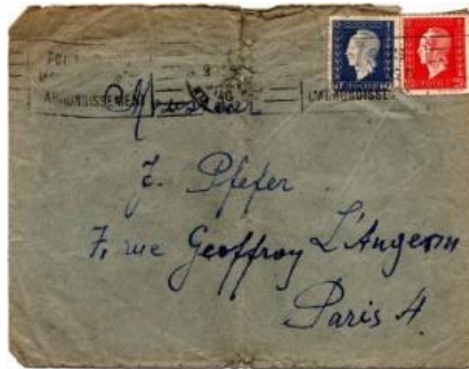 ARRONDISSEMENT
L'ARRONDISSEM
Monsieur
J. Pfefer
7, rue Geoffroy L'Angevin
Paris 4